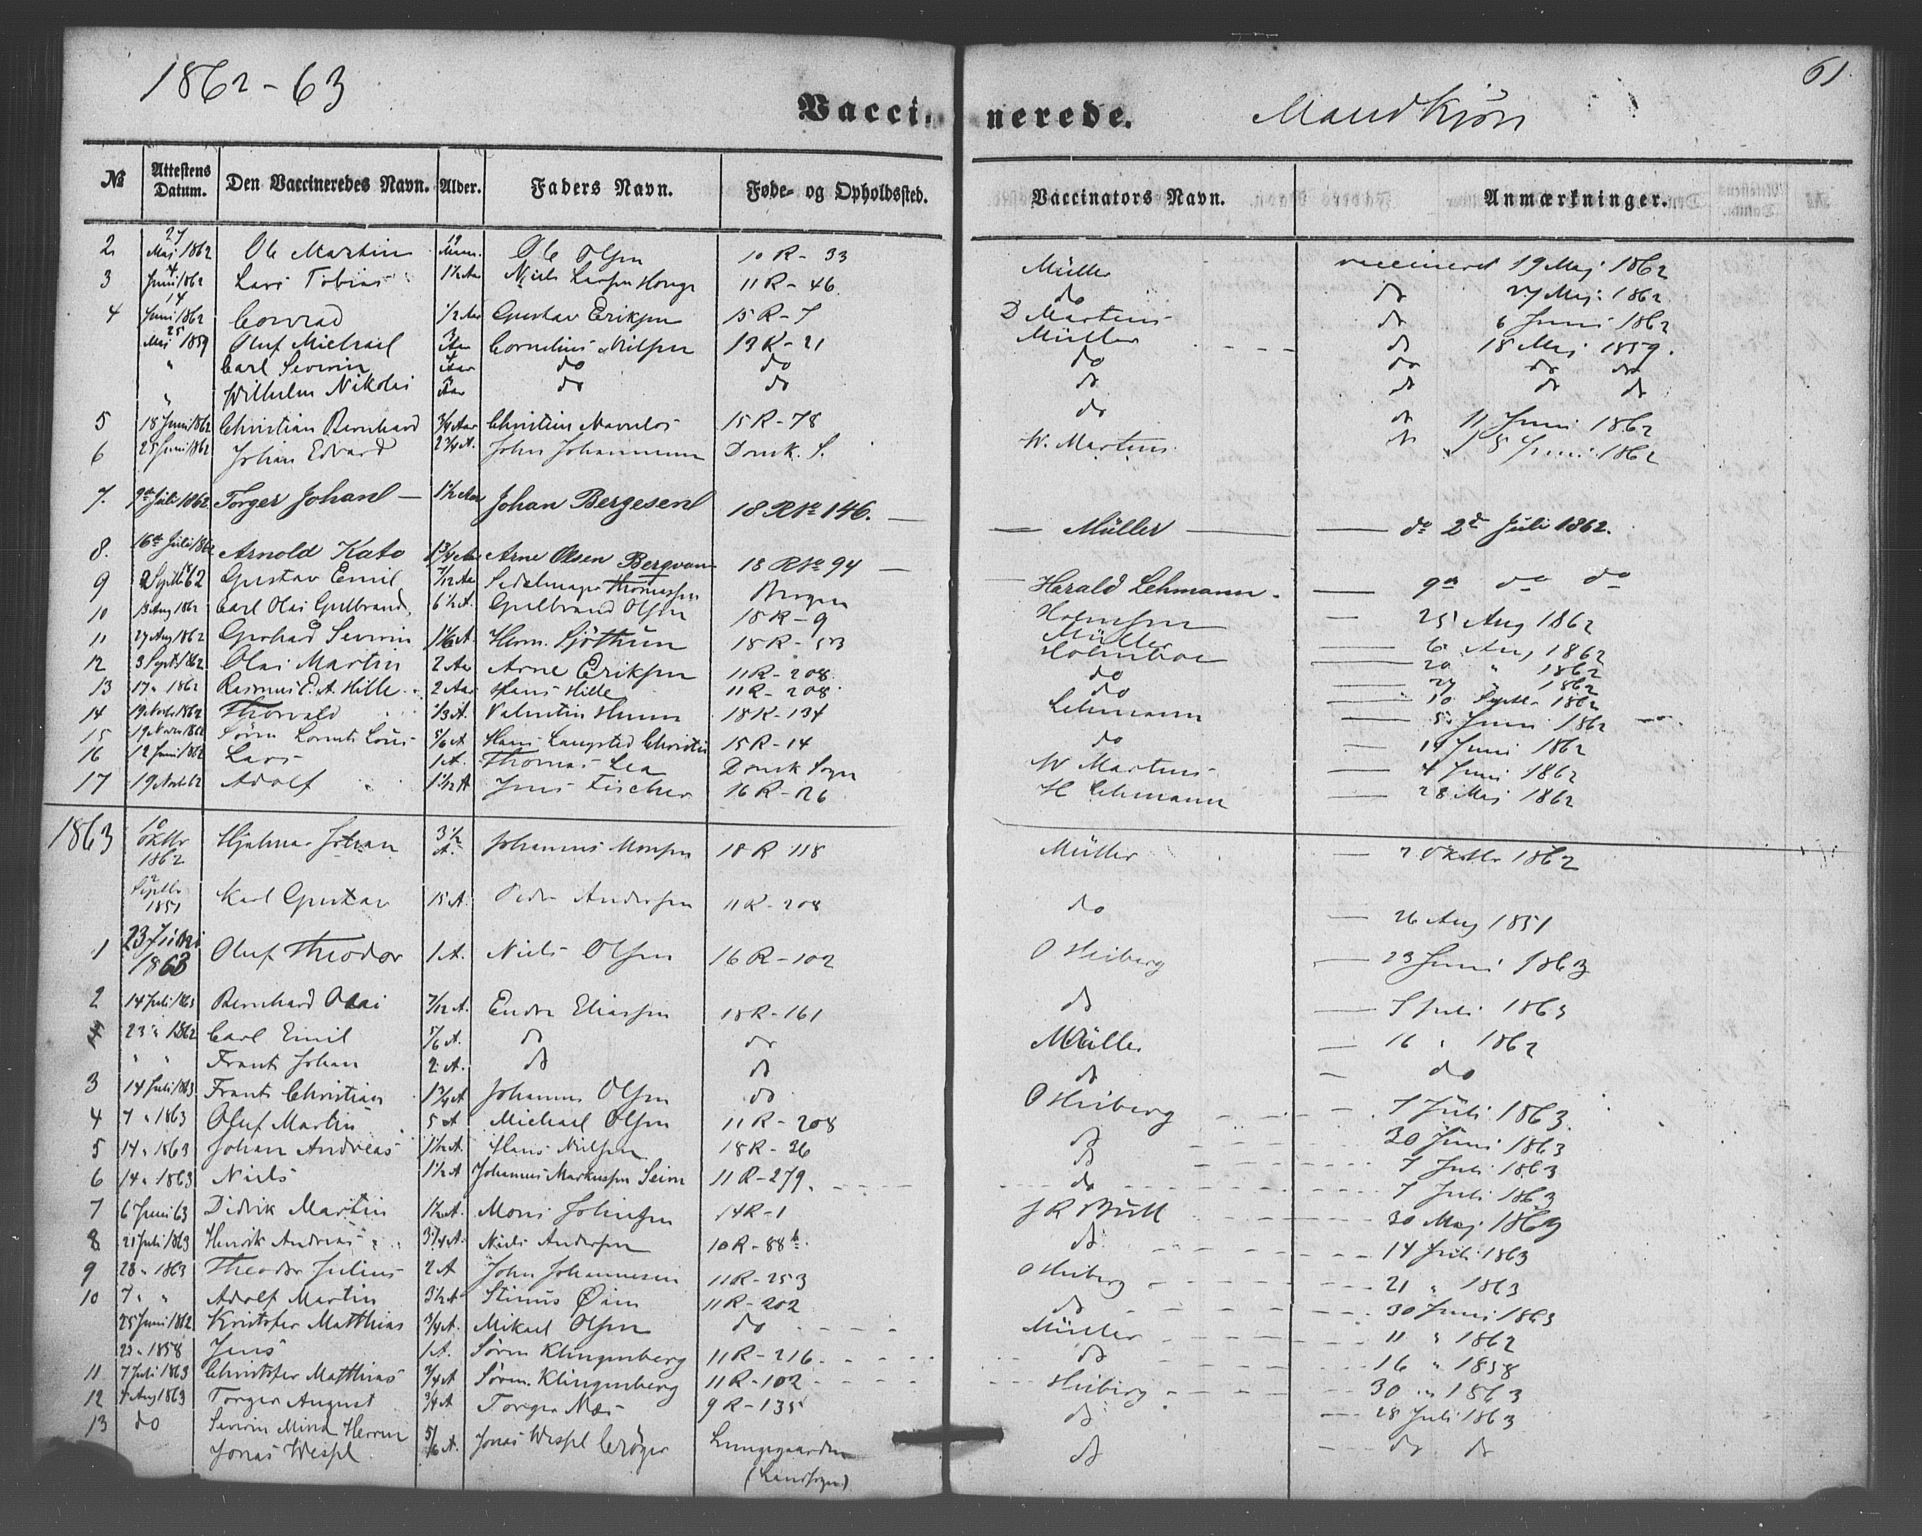 1862-63
61.
Vaccinerede. Mandkjön
№ Attestens Datum. Den Vaccineredes Navn. Alder. Faders Navn. Føde- og Opholdssted. Vaccinators Navn. Anmærkninger.
2 27 Maj 1862 Ole Martin Ole Olsen 10 R - 33 Müller vaccineret 19 Maj 1862
3 4 Juni 1862 Lars Tobias 1½ Aar Niels 11 R - 46 do do 27 Maj 1862
4 14 Juni 1862 Conrad 1/2 Aar Gustav Eriksen 15 R - 7 D Martens do 6 Juni 1862
25 Maj 1859 Oluf Michael 3 Aar Cornelius Nilsen 19 R - 21 Müller do 18 Maj 1859.
" Carl Severin 4 Aar do do do do do do
" Wilhelm Nikolai Aar do do do do do do
5 18 Juni 1862 Christian Bernhard 3/4 Aar Christian 15 R - 78 do do 11 Juni 1862
6 25 Juni 1862 Johan Edvard 2 3/4 A. John Johannesen Domk. S. W. Martens do Juni 1862
7. 9de Juli 1862 Torger Johan 1½ Aar Johan Bergesen 18 R № 146. Müller do 2d Juli 1862.
8. 16de Juli 1862 Arnold Kato 1 3/4 Aar Arne Olsen 18 R № 94
9 2 Septb 62 Gustav Emil 7/12 Aar Thomassen Bergen Harald Lehmann 9de do do
10 13 Aug 1862 Carl Olai Gulbrand 6½ A. Gulbrand Olsen 18 R - 9 25 Aug 1862
11 27 Aug 1862 Gerhard Severin 1 1/6 A Herm. Sjöthun 18 R - 53 Müller 6 Aug 1862
12 3 Septb 1862 Olai Martin 2 Aar Arne Eriksen 11 R - 208 Holmboe 20 " 1862
13 17 " 1862 Rasmus E. A. Hille 2 Aar Hans Hille 11 R - 208 do 27 " 1862
14 19 Novbr 1862 Thorvald 1/3 A. Valentin 18 R - 134 do 10 Septb 1862
15 19 Novbr 1862 Sören 5/6 A Hans 15 R - 14 Lehmann 5 Juni 1862
16 12 Juni 1862 Lars 1 A. Thomas Lea Domk Sogn do 14 Juni 1862
17 19 Novb 62 Adolf 1½ A Jens Fischer 16 R - 26 W Martens 4 Juni 1862
H Lehmann 28 Maj 1862
1863 10 Oktbr 1862 Hjalmar Johan 3½ A. Johannes Monsen 18 R 118 Müller 2 Oktbr 1862
2 Septb 1851 Karl Gustav 15 A. Peder Andersen 11 R - 208 do 26 Aug 1851
1 23 Juni 1863 Oluf Theodor 1 A. Niels Olsen 16 R - 102 O Heiberg 23 Juni 1863
2 14 Juli 1863 Bernhard Olai 7/12 A. Endre Eliassen 18 R - 161 do 7 Juli 1863
23 " 1862 Carl Emil 5/6 A. do do Müller 16 " 1862
" " Frants Johan 2 A. do do do do
3 14 Juli 1863 Frants Christian 1 3/4 A Johannes Olsen do O Heiberg 7 Juli 1863.
4 7 " 1863 Oluf Martin 5 A Michael Olsen 11 R - 208 do 30 Juni 1863
5 14 " 1863 Johan Andreas 1½ A. Hans Nilsen 18 R - 36 do 7 Juli 1863
6 14 " 1863 Niels 1½ A Johannes Markussen Seim 11 R - 279. do 7 Juli 1863
7 6 Juni 63 Didrik Martin 1½ A. Mons Johnsen 14 R - 1 J R Bull 30 Maj 1863
8 21 Juli 1863 Henrik Andreas 3 3/4 A. Niels Andersen 10 R - 88 b. do 14 Juli 1863
9 28 " 1863 Theodor Julius 2 A John Johannesen 11 R - 253 O Heiberg 21 " 1863
10 7 " " Adolf Martin 3½ A Stinus Öien 11 R - 202 do 30 Juni 1863
25 Juni 1862 Kristofer Matthias 3/4 A. Mikael Olsen do Müller 11 " 1862
23 " 1858 Jens 1 A. Sören Klingenberg 11 R - 216. do 16 " 1858
11 7 Juli 1863 Christofer Matthias 3/4 A Sören Klingenberg 11 R - 102 Heiberg 30 " 1863
12 4 Aug 1863 Torger August 3/4 A Torger Næs 9 R - 135 do 28 Juli 1863
13 do Severin Herrin 5/6 A. Jonas Wespl Cröger Lungegaarden do do do
Jonas Wespl (Landsogn)